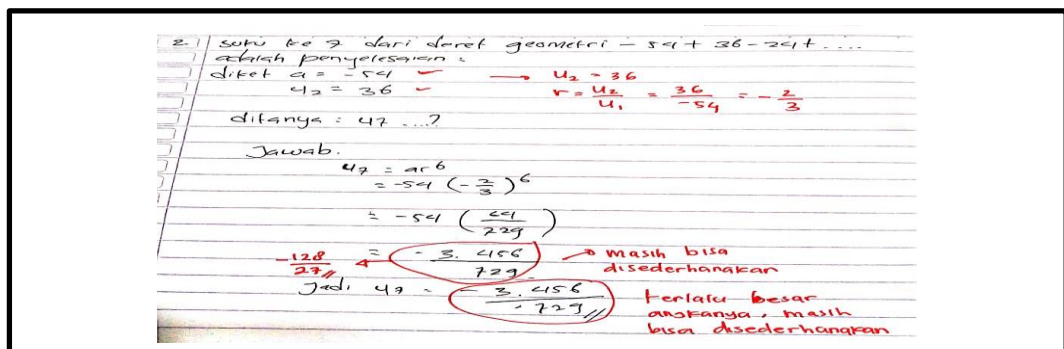 2. suku ke 7 dari deret geometri - 54 + 36 - 24 + ....
adalah penyelesaian :
diket a = -54 → U₂ = 36
u₂ = 36 r = U₂/U₁ = 36/-54 = - 2/3
ditanya : u7 ...?
Jawab.
u7 = ar⁶
= -54 (- 2/3)⁶
= -54 (64/729)
-128/27 ← = - 3.456/729 → masih bisa disederhanakan
Jadi u7 = - 3.456/729 terlalu besar
angkanya, masih
bisa disederhanakan